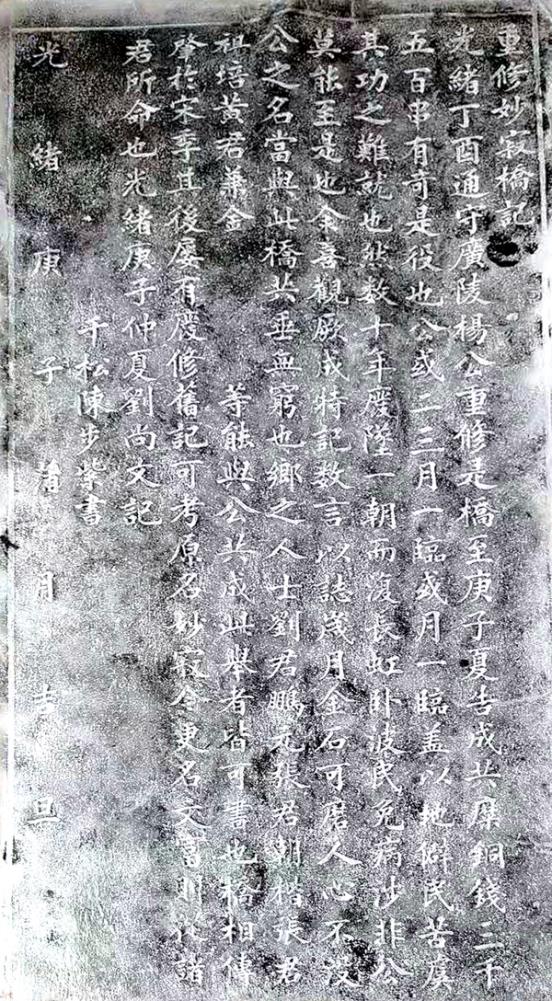 重修妙寂橋記
光緒丁酉通守廣陵楊公重修是橋至庚子夏告成共糜銅錢二千
五百串有奇是役也公或二三月一臨或月一臨盖以地僻民苦虞
其功之難就也然数十年廢墜一朝而復長虹卧波民免病涉非公
莫能至是也余喜觀厥成特記数言以誌歲月金石可磨人心不沒
公之名當與此橋共垂無窮也鄉之人士劉君鵬元張君朝楷張君
祖培黃君兼金 等能與公共成此舉者皆可書也橋相傳
肇於宋季其後屡有廢修舊記可考原名妙寂今更名文富則從諸
君所命也光緒庚子仲夏劉尚文記
于松陳步 書
光緒庚子 月吉旦